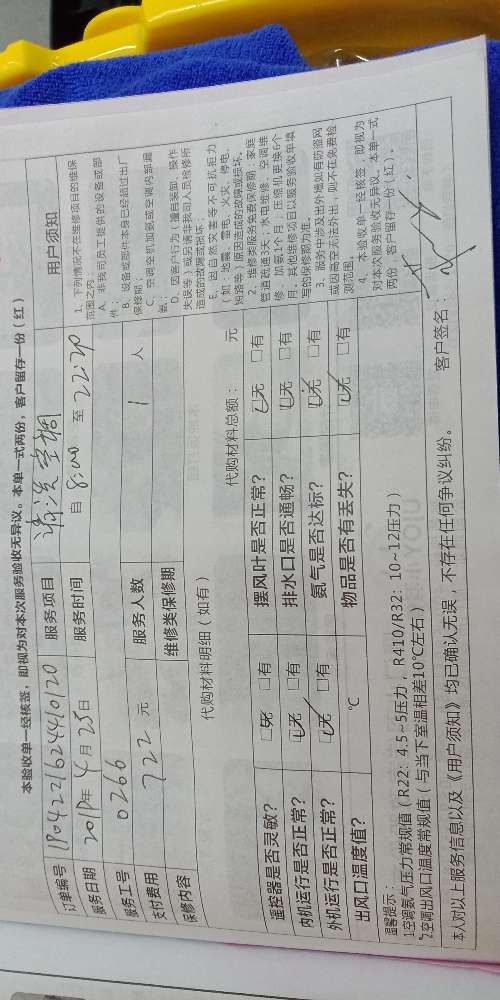 本验收单一经核签，即视为对本次服务验收无异议。本单一式两份，客户留存一份（红）
订单编号 服务项目 清洗空调 用户须知
服务日期 2018年4月25日 服务时间 自 8:00 至 22:20
服务工号 0266
支付费用 722 元 服务人数 1 人
保修内容 维修类保修期
1、下列情况不在维修项目的维保
范围之内：
A、非我司员工提供的设备或部
件；
B、设备或部件本身已经超过出厂
保修期；
C、空调空机加氨或空调内部漏
氨；
D、因客户行为（擅自装卸、操作
失误等）或另请非我司人员检修所
造成的故障或损坏；
E、因自然灾害等不可抗拒力
（如：地震、雷电、火灾、停电、
短路等）原因造成的故障或损坏。
2、维修类服务免费保修期：家庭
管道疏通3天，水电维修、空调维
修、加氨1个月，压缩机更换6个
月，其他维修项目以服务验收单填
写的保修期为准。
3、服务中涉及出外墙如有防盗网
或因高空无法外出，则不在免费检
测范围。
4、本验收单一经核签，即视为
对本次服务验收无异议。本单一式
两份，客户留存一份（红）。
代购材料明细（如有） 代购材料总额： 元
遥控器是否灵敏？ □无 □有 摆风叶是否正常？ □无 □有
内机运行是否正常？ □无 □有 排水口是否通畅？ □无 □有
外机运行是否正常？ □无 □有 氨气是否达标？ □无 □有
出风口温度值？ ℃ 物品是否有丢失？ □无 □有
温馨提示：
1空调氨气压力常规值（R22：4.5~5压力，R410/R32：10~12压力）
2空调出风口温度常规值（与当下室温相差10℃左右）
本人对以上服务信息以及《用户须知》均已确认无误，不存在任何争议纠纷。 客户签名：